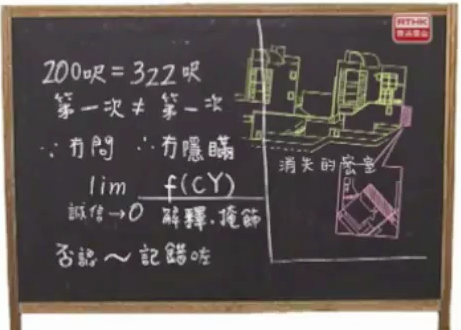 RTHK
香港電台
200呎=322呎
第一次≠第一次
∵冇問 ∴冇隱瞞
lim f(CY)
誠信→0 解釋、掩飾
否認~記錯咗
消失的密室